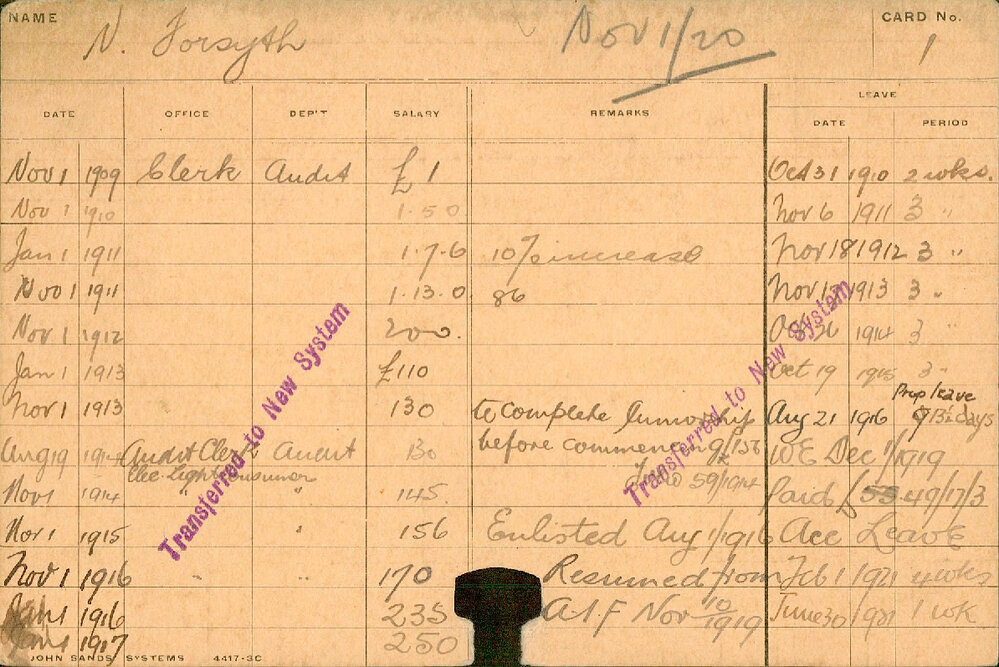 NAME N. Forsyth Nov 1/20 CARD No. 1
DATE OFFICE DEP'T SALARY REMARKS LEAVE
DATE PERIOD
Nov 1 1909 Clerk Audit £1 Oct 31 1910 2 wks.
Nov 1 1910 1.5.0 Nov 6 1911 3 "
Jan 1 1911 1.7.6 10% increase Nov 18 1912 3 "
Nov 1 1911 1.13.0 86 Nov 1913 3 "
Nov 1 1912 200. 1914 3 "
Jan 1 1913 £110 Oct 19 1915 3 "
Nov 1 1913 130 to complete Aug 21 1916 Prop leave 9 13½ days
Aug 19 1914 Audit Clerk Audit 130 before commencing WE Dec 1/1919
Elec. Light
Nov 1 1914 " 145 59/1914 Paid £ 55 49/17/3
Nov 1 1915 " 156 Enlisted Aug 1/1916 Acc Leave
Nov 1 1916 " " 170 Resumed from Feb 1 1921 4 wks
Jan 1 1916 235 A.I.F Nov 10/1919 June 30 1921 1 wk
Jan 1 1917 250
Transferred to New System
Transferred to New System
JOHN SANDS' SYSTEMS 4417-3C